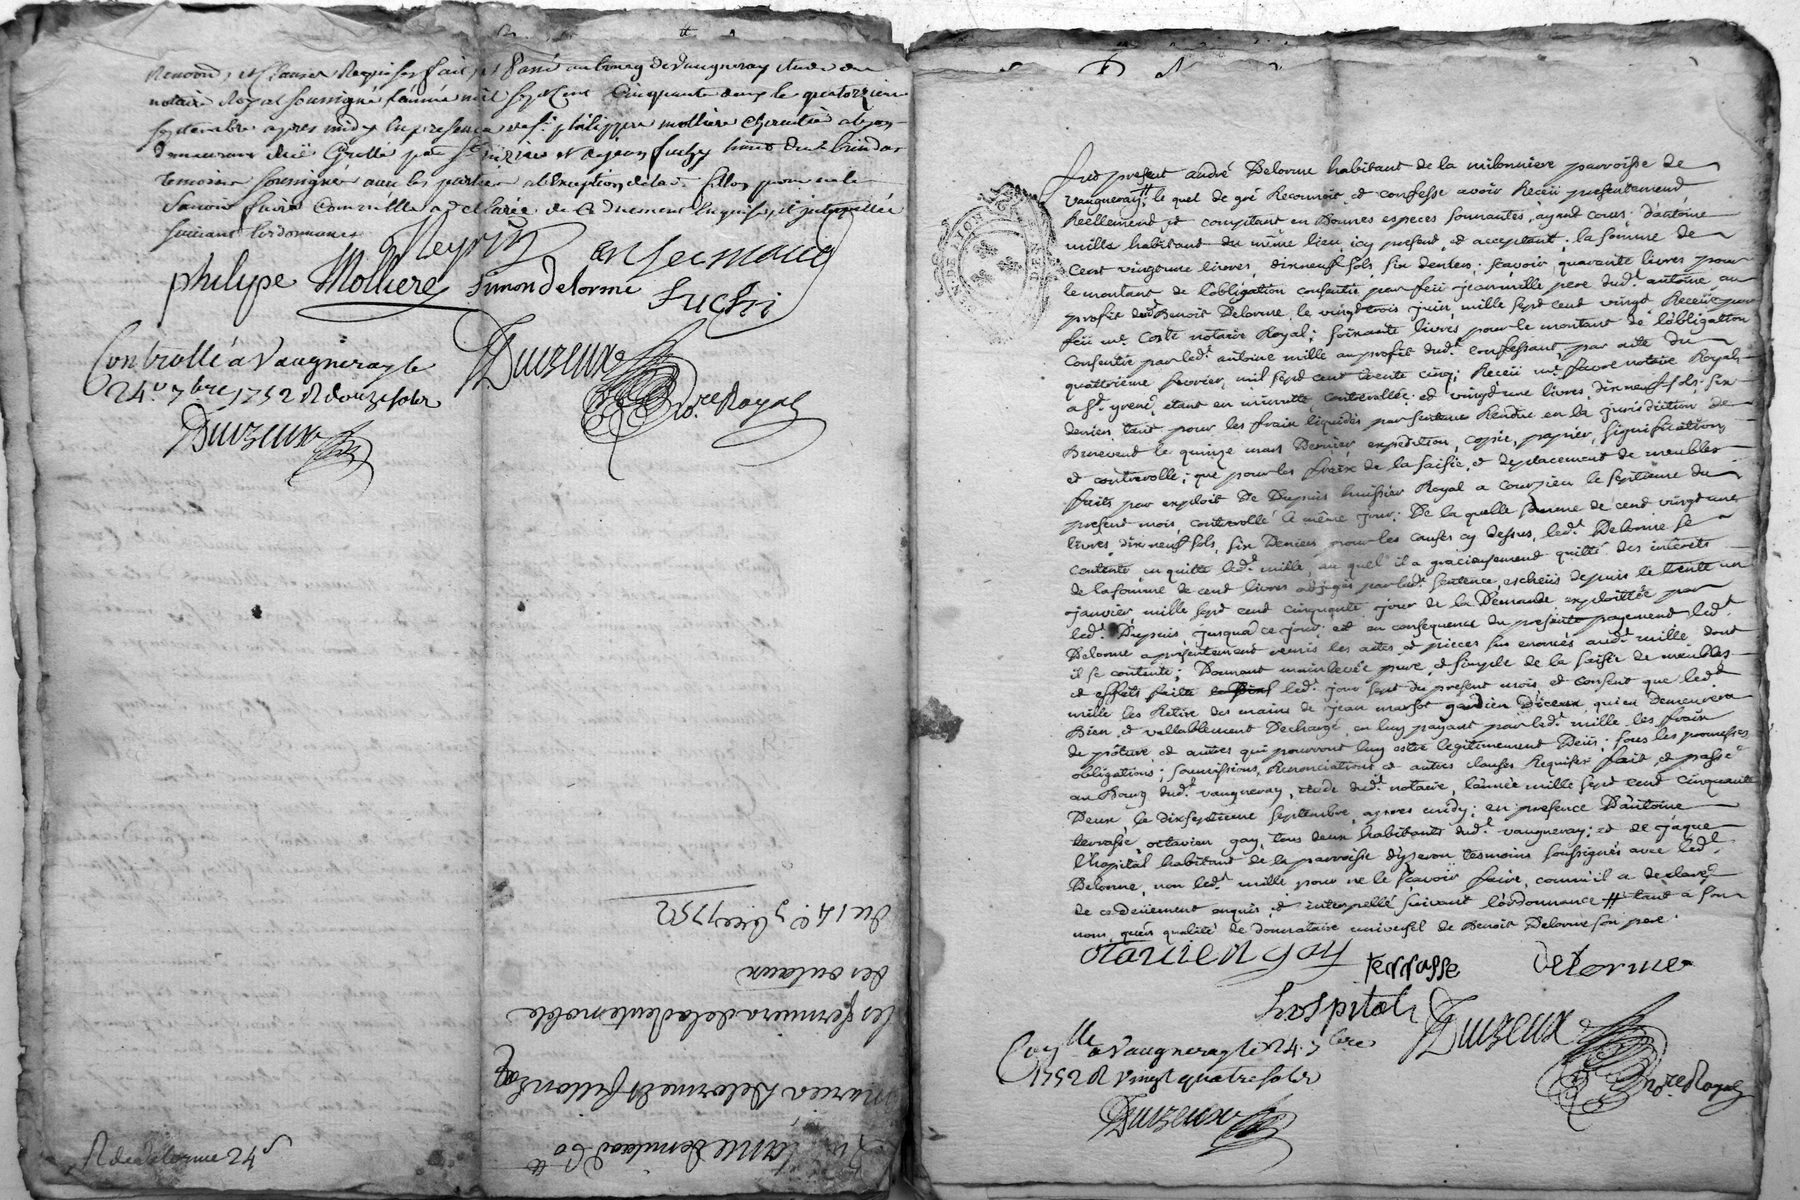 Renoncions et Clauses Requises fait et Passé au bourg de Vaugneray étude du
notaire Royal soussigné l'année mil sept Cent Cinquante deux le quatorzieme
septembre apres midy En presence de sr philippe molliere
demeurant
temoins soussignés avec les parties a l'Exception de lad. fillon pour ne le
scavoir faire Comme elle a declaré de Ce duement Enquise et interpellée
suivant l'ordonnance
philipe Molliere Simon delorme Suchi
Duizeux nore Royal
Controllé a Vaugneray le
24e 7bre 1752 R douze sols
Duizeux
Du 14e 7bre 1752
des
les fermiers de la dente noble
marie Delorme et fillon
R de delorme 24s
GEN DE LION
Fut présent andré Delorme habitant de la milonniere parroisse de
Vaugneray # le quel de gré Reconnoit et confesse avoir Receü presentement
Reellement et comptant en Bonnes especes sonnantes, ayant cours d'antoine
mille habitant du même lieu, icy present, et acceptant, la somme de
Cent vingt une livres, dixneuf sols, six deniers; scavoir quarante livres pour
le montant de l'obligation consentie par feü jean mille pere dud.t antoine, au
profit dud. Benoit Delorme, le vingt trois juin, mille sept cent vingt Receüe par
feü me. Coste notaire Royal; soixante livres pour le montant de l'obligation
Consentie par led.t antoine mille au profit dud.t confessant, par acte du
quattrieme fevrier, mil sept cent trente cinq; Receü me. favre notaire Royal
a St. , etant en minutte controllée; et vingt une livres, dixneuf sols, six
deniers, tant pour les fraix liquidés par sentence Rendue en la jurisdiction de
le quinze mars Dernier, expedition, copie, papier, signification,
et controolle; que pour les fraix de la saisie, et deplacement de meubles
faits par exploit De Dupuis huissier Royal a Courzieu le septieme du
present mois, controollé le même jour; De la quelle somme de cent vingt une
livres, dix neuf sols, six Deniers pour les causes cy dessus, led.t Delorme se
contente, en quitte led.t mille, au quel il a gracieusement quitté des interets
de la somme de cent livres adjugés par lad.t sentence, escheüs depuis le trente un
janvier mille sept cent cinquante jour de la Demande exploittée par
led.t Dupuis, jusqua ce jour, et en consequence du present payement led.t
Delorme a presentement remis les actes et pieces sus enoncés aud.t mille, dont
il se contente; Donnant mainlevée pure, et simple de la saisie de meubles
et effets faite led.t jour sept du present mois et consent que led.t
mille les Retire des mains de jean gardien D'iceux, qui en Demeurera
Bien, et vallablement Dechargé, en luy payant par led.t mille les fraix
de pâture et autres qui pourront luy estre legitimement Deüs; sous les promesses
obligations; soumissions, Renonciations et autres clauses Requises fait et passé
au Bourg dud.t vaugneray, étude dud.t notaire, l'année mille sept cent cinquante
Deux, le dixseptieme septembre, apres midy; en presence D'antoine
terrasse, octavien gay, tous deux habitants dud.t vaugneray; et de jaque
l'hopital habitant de la parroisse d'yseron tesmoins soussignés avec led.t
Delorme, non led.t mille pour ne le scavoir faire, comm'il a declaré
de ce deüement enquis, et interpellé suivant l'ordonnance # tant a son
nom, qu'en qualité de donnataire universel de Benoit Delorme son pere.
otavien gay terrasse delorme
hospital Duizeux nore Royal
Conlle a Vaugneray le 24. 7bre
1752 R vingt quatre sols
Duizeux